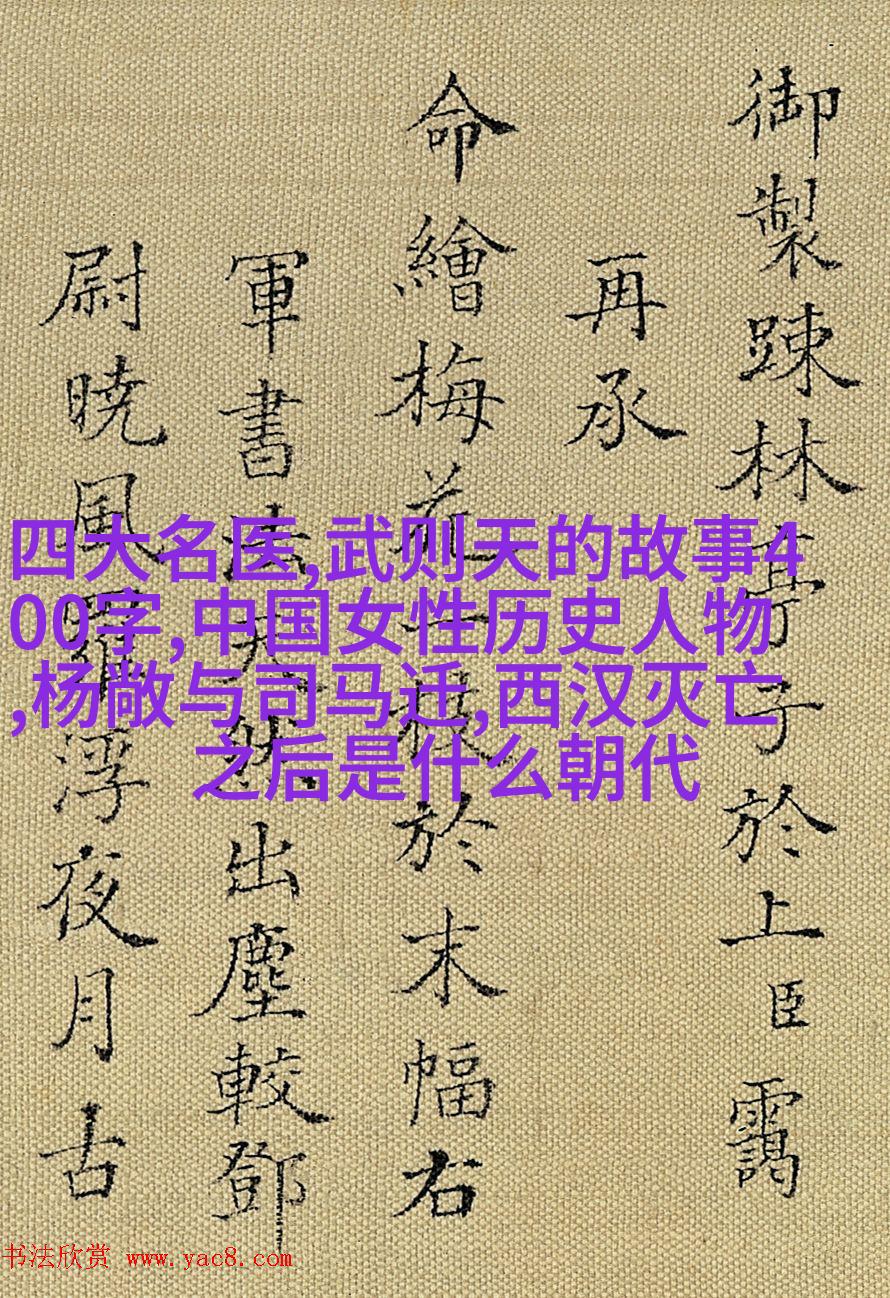 御製踈林亭子於上臣靄
再承
命繪梅花一於末幅右
軍書法天然出塵較鄧
尉暁風羅浮夜月古
四大名医,武则天的故事4
00字,中国女性历史人物
,杨敞与司马迁,西汉灭亡
之后是什么朝代
书法欣赏 www.yac8.com